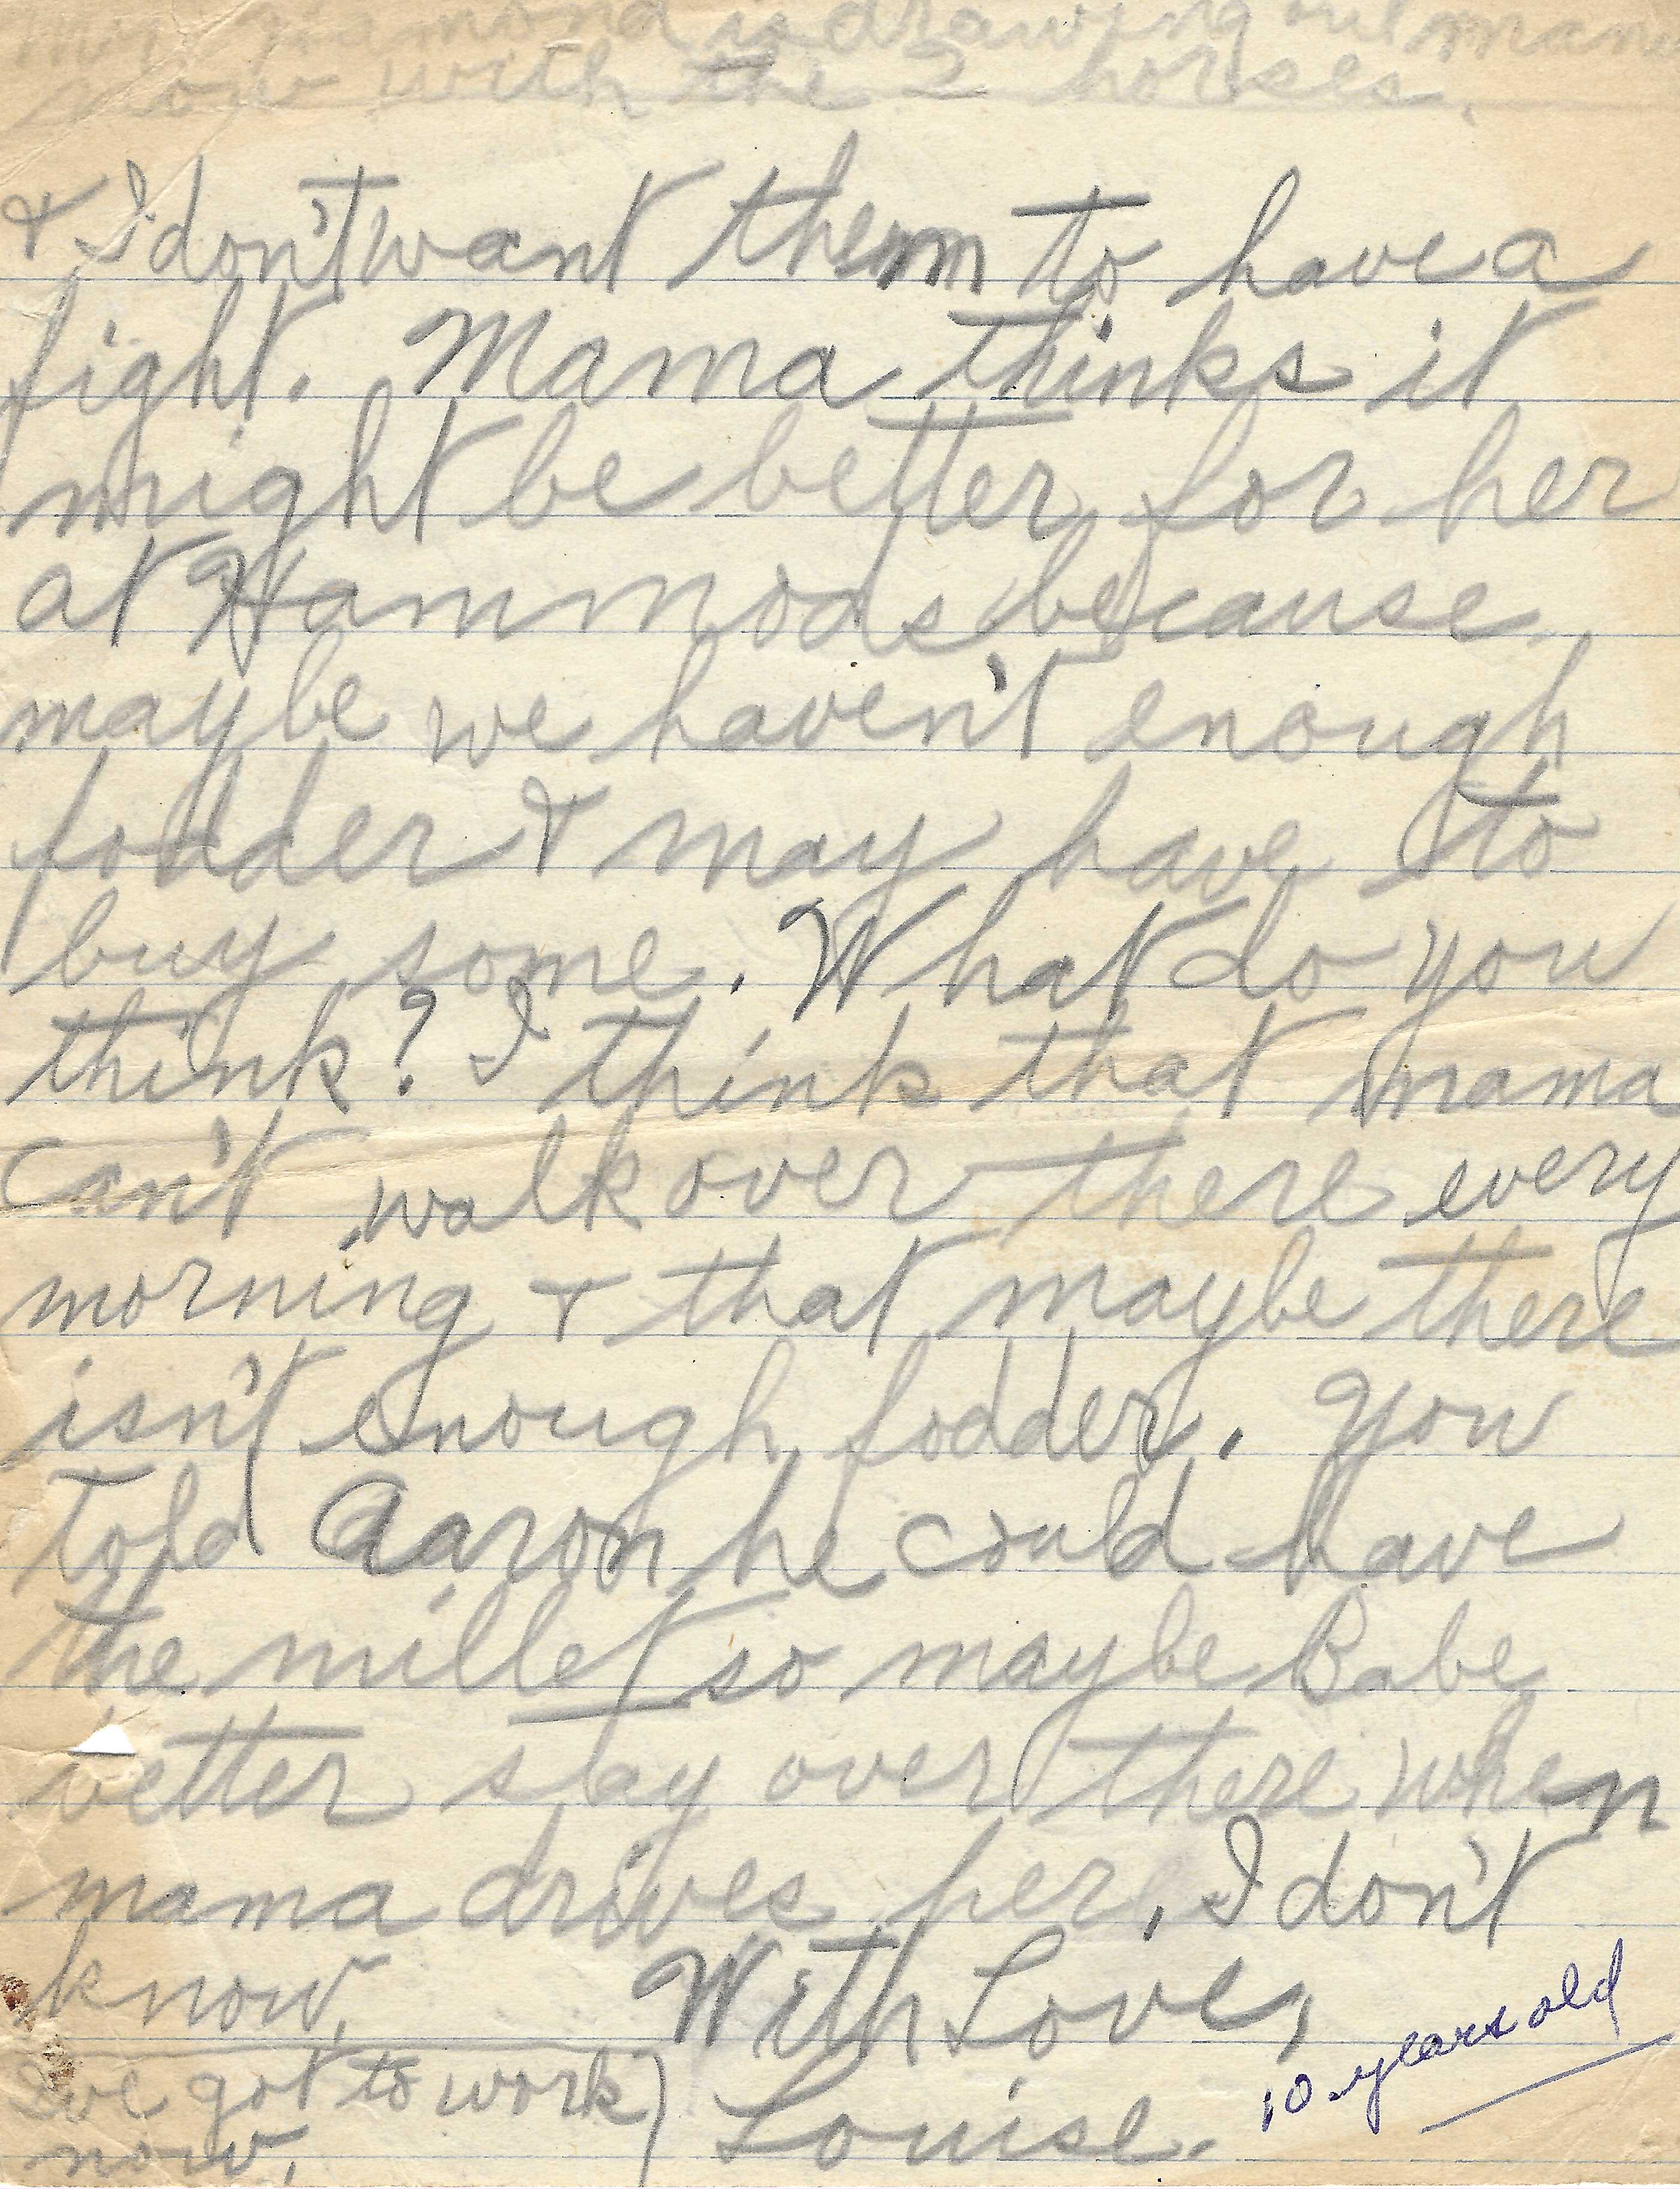 Mr. Hammond is drawing out manure
now with the 2 horses.
& I don't want them to have a
fight. Mama thinks it
might be better for her
at Hammods because
maybe we haven't enough
fodder & may have to
buy some. What do you
think? I think that mama
can't walk over there every
morning & that maybe there
isn't enough fodder. You
told Aaron he could have
the millet so maybe Babe
better stay over there when
mama drives her. I don't
know. With Love,
I've got to work
now.
Louise.
10 years old